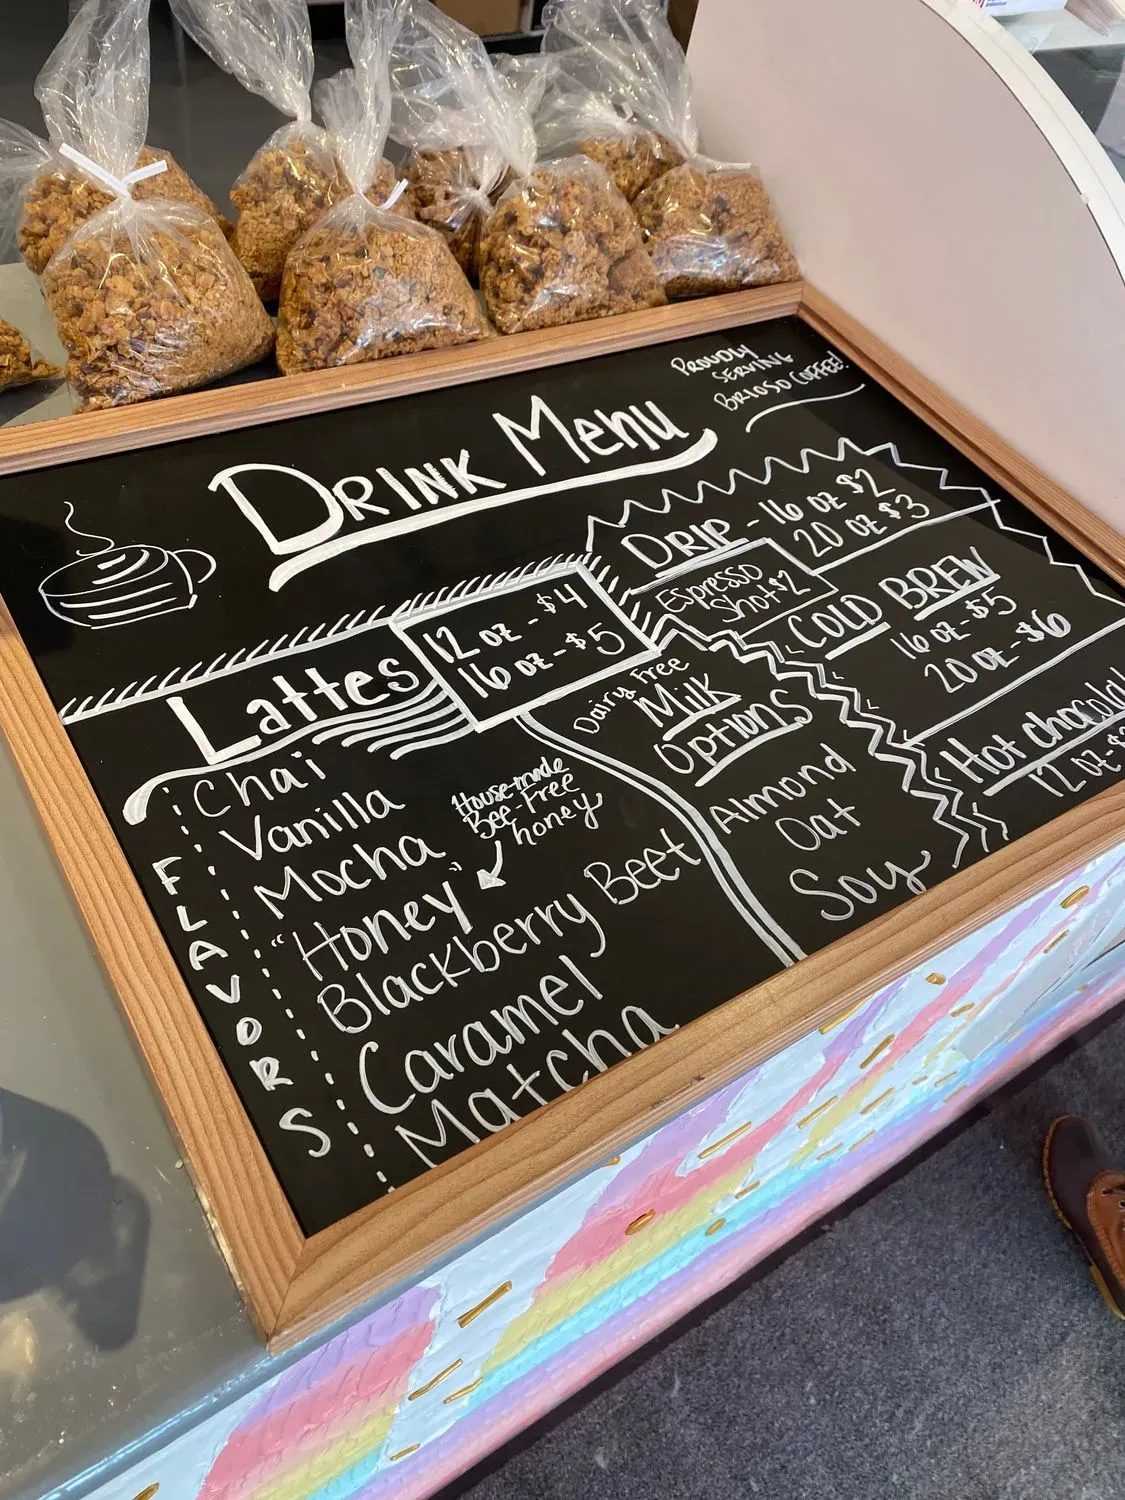 PROUDLY
SERVING
BRIOSO COFFEE!
DRINK Menu
Lattes
12 oz - $4
16 oz - $5
FLAVORS
Chai
Vanilla
Mocha
"Honey"
House-made
Bee-Free
honey
Blackberry Beet
Caramel
Matcha
Dairy Free
Milk
Options
Almond
Oat
Soy
DRIP - 16 oz $2
20 oz $3
Espresso
Shot $2
COLD BREW
16 oz - $5
20 oz - $6
Hot chocolat
12 oz - $